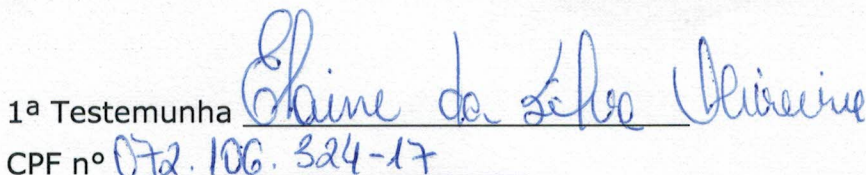 1ª Testemunha Elaine da Silva Oliveira
CPF nº 072.106.324-17